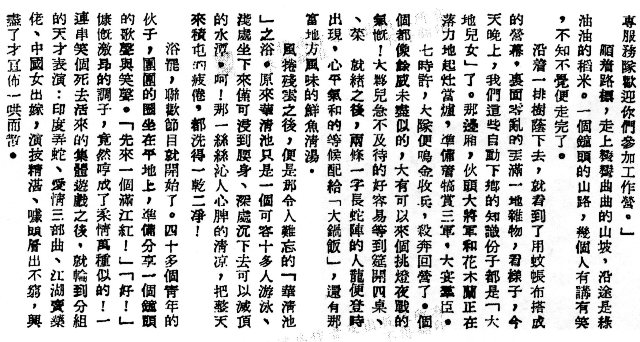 專服務隊歡迎你們參加工作營。」
　順着路標，走上彎彎曲曲的山坡，沿途是綠
油油的稻米。一個鐘頭的山路，幾個人有講有笑
，不知不覺便走完了。
　沿着一排樹蔭下去，就看到了用蚊帳布搭成
的營幕，裏面零亂的丟滿一地雜物，看樣子，今
天晚上，我們這些自動下鄉的知識份子都是「大
地兒女」了。那邊廂，伙頭大將軍和花木蘭正在
落力地起灶當爐，準備着犒賞三軍，大宴羣臣。
　七時許，大隊便鳴金收兵，殺奔回營了。個
個都像餘威未盡似的，大有可以來個挑燈夜戰的
氣慨！大夥兒急不及待的好容易等到筵開四桌、
、菜　就緒之後，兩條一字長蛇陣的人龍便登時
出現，心平氣和的等候配給「大鍋飯」，還有那
富地方風味的鮮魚清湯。
　風捲殘雲之後，便是那令人難忘的「華清池
」之浴。原來華清池只是一個可容十多人游泳、
淺處坐下來僅可浸到腰身、深處沉下去可以滅頂
的水潭。呵！那一絲絲沁人心脾的清凉，把整天
來積屯的疲倦，都洗得一乾二凈！
　浴罷，聯歡節目就開始了。四十多個青年的
伙子，團團的圈坐在平地上，準備分享一個鐘頭
的歌聲與笑聲。「先來一個滿江紅！」「好！」
慷慨激昂的調子，竟然哼成了柔情萬種似的！一
連串笑個死去活來的集體遊戲之後，就輪到分組
的天才表演：印度弄蛇、愛情三部曲、江湖賣藥
佬、中國女出嫁，演技精湛、噱頭層出不窮，興
盡了才宣佈一哄而散。